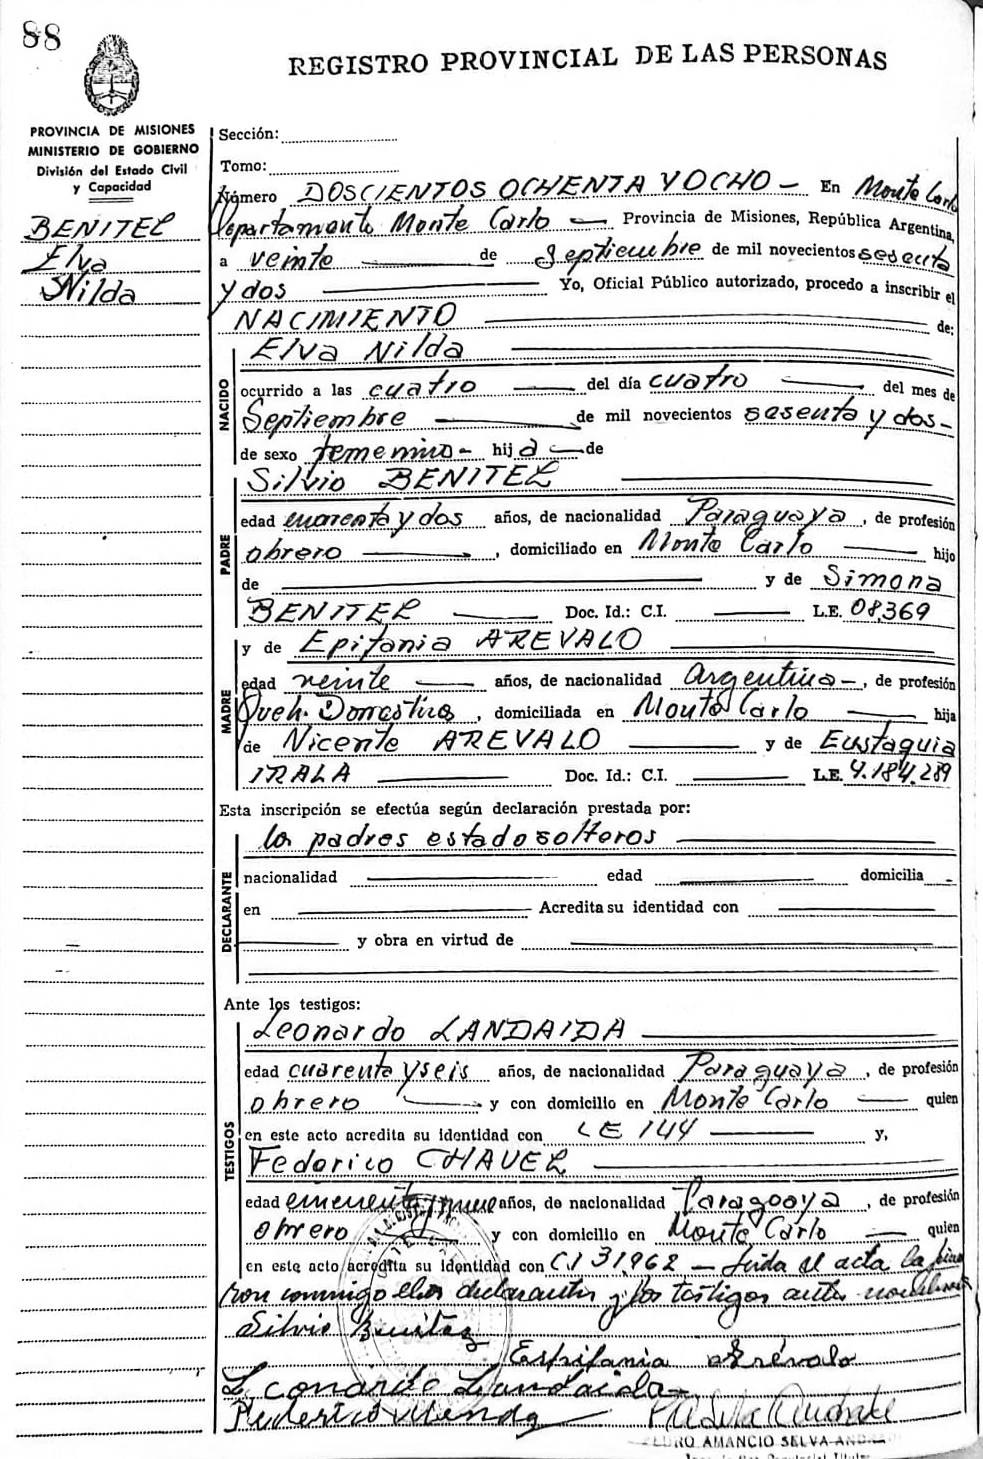 88
REGISTRO PROVINCIAL DE LAS PERSONAS
PROVINCIA DE MISIONES
MINISTERIO DE GOBIERNO
División del Estado Civil
y Capacidad
BENITEZ
Elva
Nilda
Sección:
Tomo:
Número DOSCIENTOS OCHENTA Y OCHO - En Monte Carlo
Departamento Monte Carlo — Provincia de Misiones, República Argentina,
a veinte — de Septiembre de mil novecientos sesenta
y dos — Yo, Oficial Público autorizado, procedo a inscribir el
NACIMIENTO — de:
NACIDO
Elva Nilda —
ocurrido a las cuatro — del día cuatro — del mes de
Septiembre — de mil novecientos sesenta y dos -
de sexo femenino - hija — de
PADRE
Silvio BENITEZ —
edad cuarenta y dos años, de nacionalidad Paraguaya, de profesión
obrero —, domiciliado en Monte Carlo — hijo
de — y de Simona
BENITEZ — Doc. Id.: C.I. — L.E. 08,369
MADRE
y de Epifania AREVALO —
edad veinte — años, de nacionalidad Argentina -, de profesión
Queh. Domesticos, domiciliada en Monte Carlo — hija
de Vicente AREVALO — y de Eustaquia
IRALA — Doc. Id.: C.I. — L.E. 4.184.289
Esta inscripción se efectúa según declaración prestada por:
DECLARANTE
los padres estado solteros —
nacionalidad — edad — domicilia -
en — Acredita su identidad con —
— y obra en virtud de —
Ante los testigos:
TESTIGOS
Leonardo LANDAIDA —
edad cuarenta y seis años, de nacionalidad Paraguaya, de profesión
obrero — y con domicilio en Monte Carlo — quien
en este acto acredita su identidad con LE 144 — y,
Federico CHAVEZ —
edad años, de nacionalidad Paragoaya, de profesión
obrero — y con domicilio en Monte Carlo — quien
en este acto acredita su identidad con C.I 31,962 - Leida el acta la firma
ron conmigo ellos declarantes y los testigos antes nombrados
Silvio Benitez
Espifania Arévalo
Leonardo Landaida
Federico
PEDRO AMANCIO SELVA